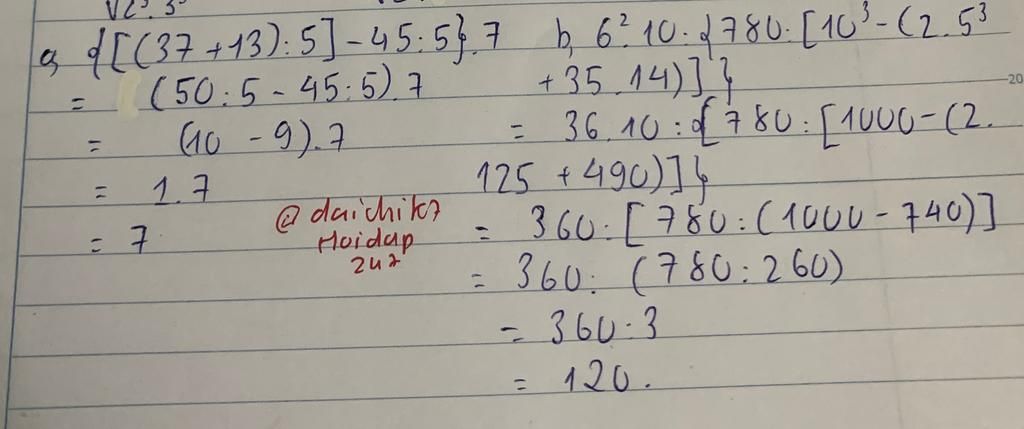 √2³.3³
a, {[(37+13):5]-45:5}.7
= (50:5-45:5).7
= (10-9).7
= 1.7
= 7
@daichik7
Hoidap
247
b, 6².10:{780:[10³-(2.5³
+35.14)]}
= 36.10:{780:[1000-(2.
125+490)]}
= 360:[780:(1000-740)]
= 360:(780:260)
= 360:3
= 120.
20